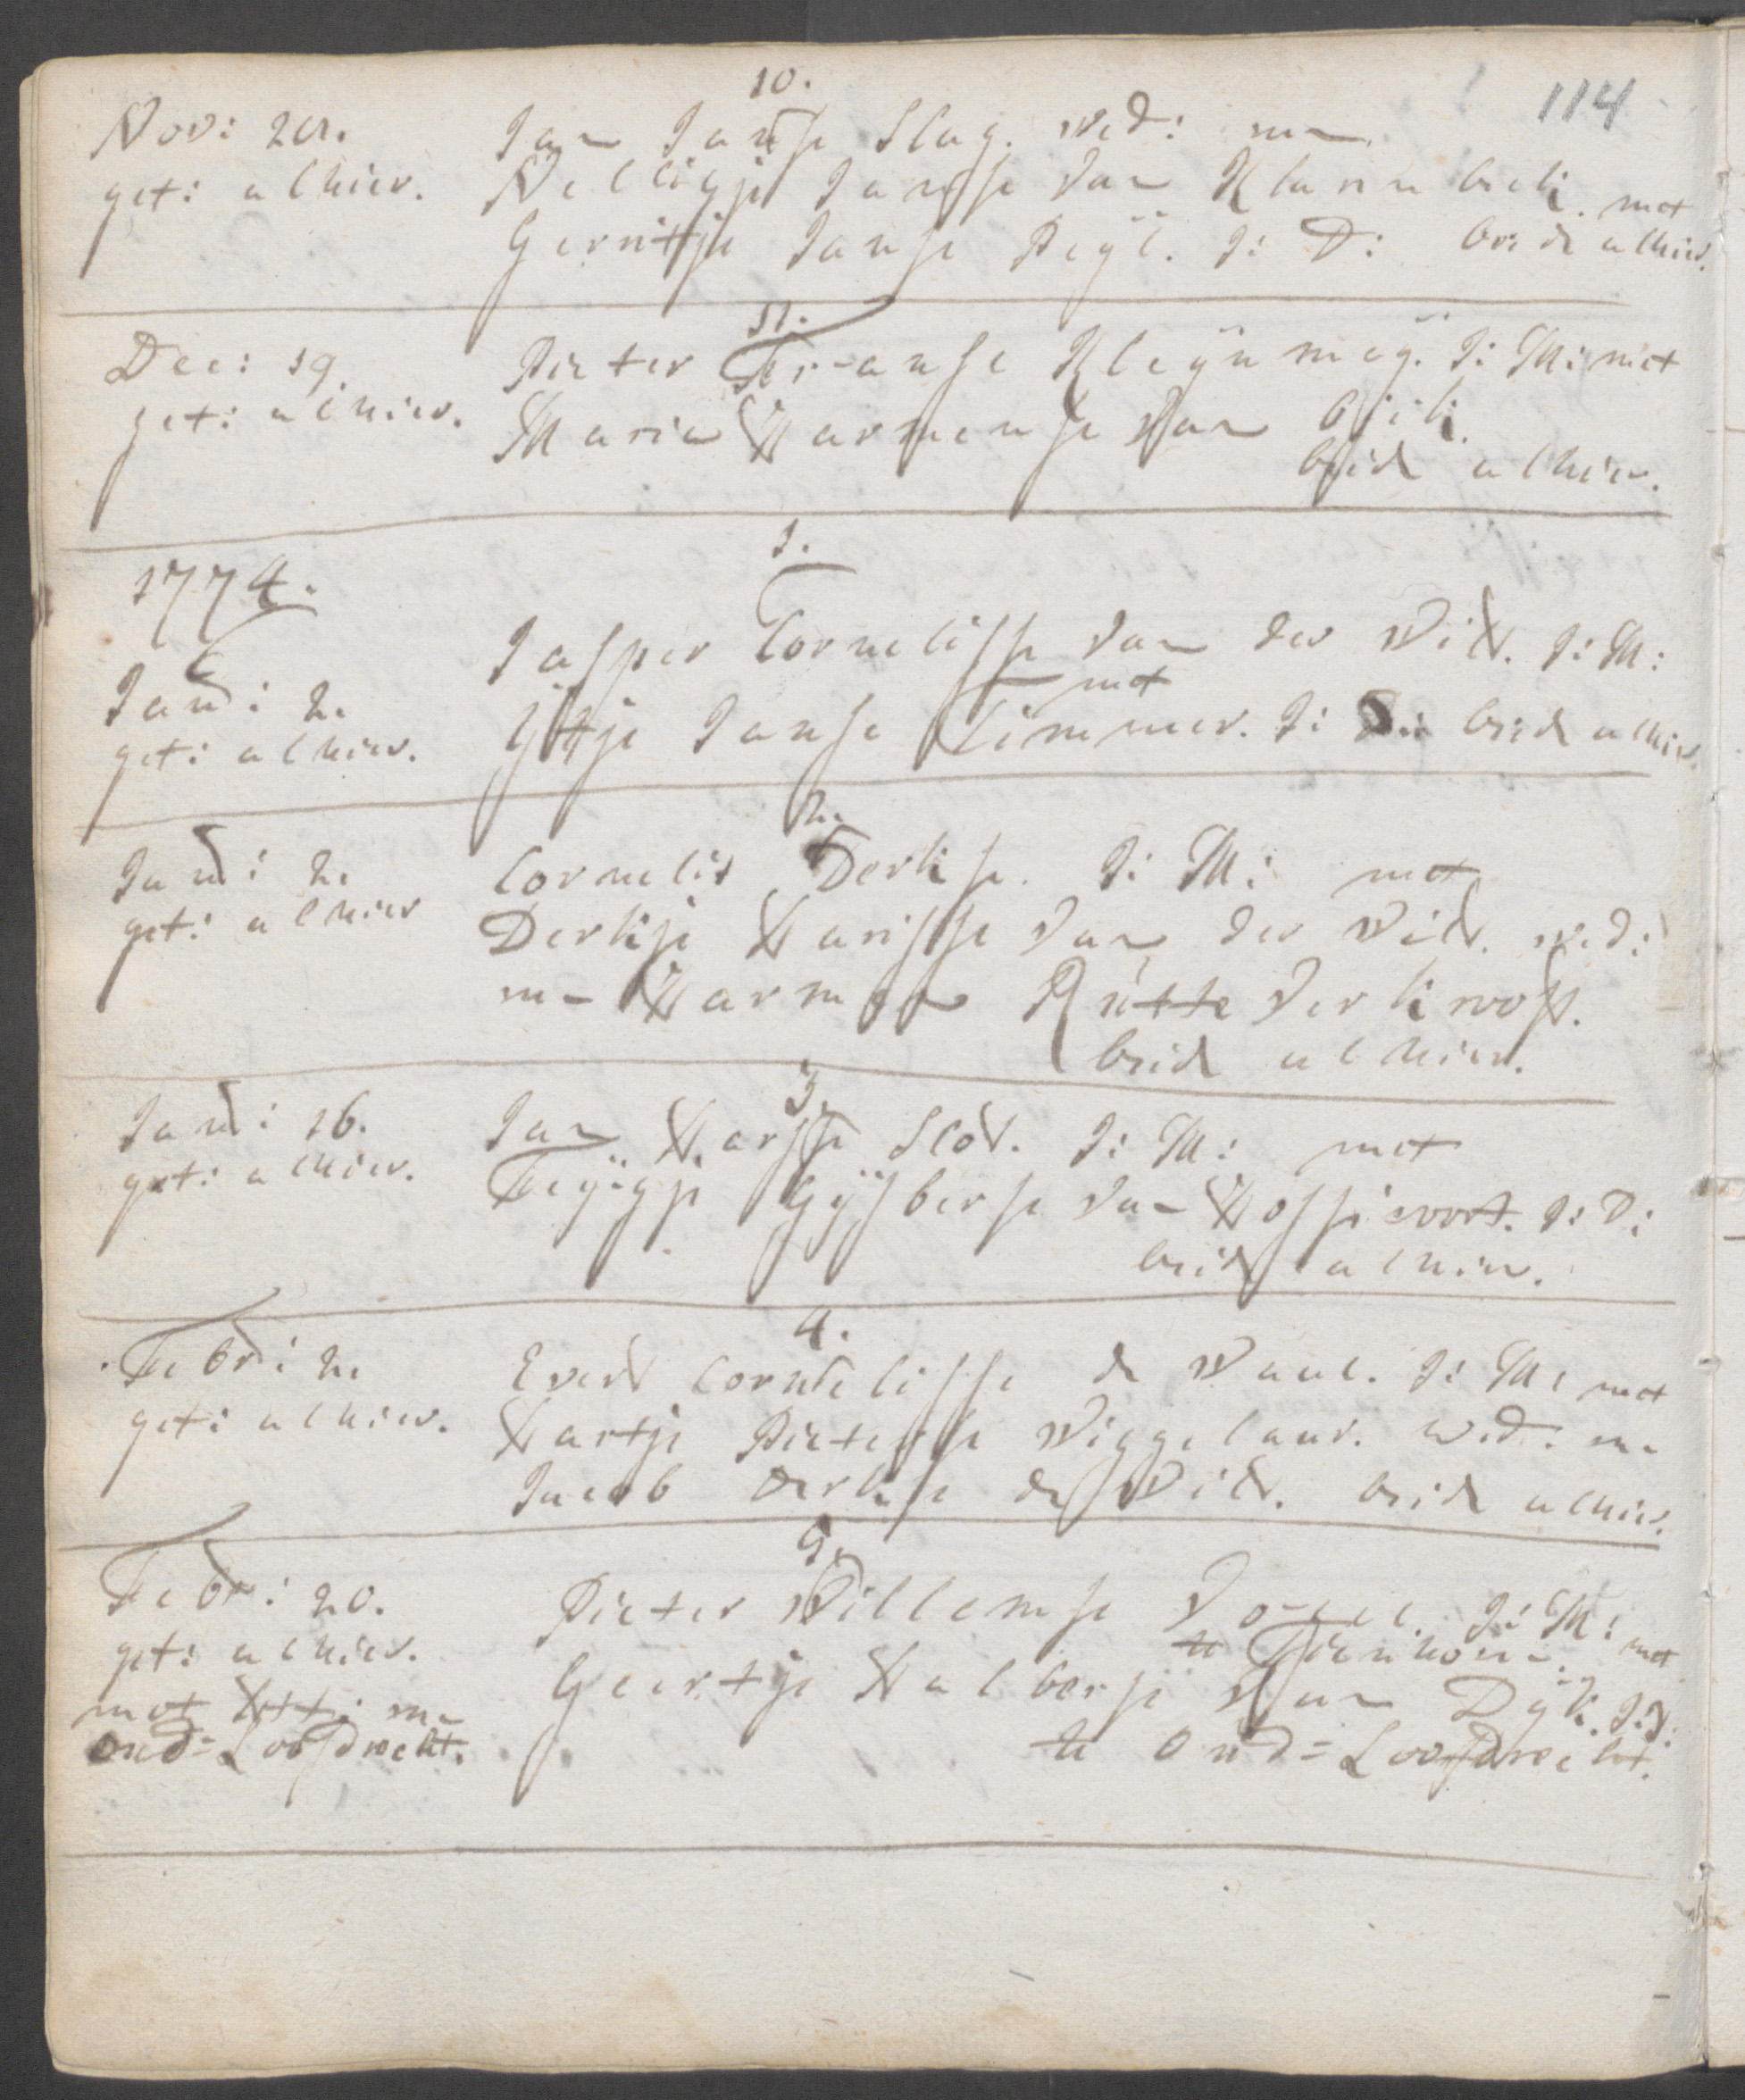 114
10.
Nov: 21.
get: alhier.
Jan Janse Slag. wed: m-
Nelligje Janse van Klarenbeek. met
Gerritje Janse Peyl. J: D: beide alhier.
11.
Dec: 19.
get: alhier.
Pieter Franse Kleyn mey. J: M: met
Maria Harmense van Beek.
beide alhier.
1774.
1.
Jan: 2.
get: alhier.
Jasper Cornelisse van der Wild. J: M:
met
Gytje Janse Timmer. J: D: beide alhier.
2.
Jan: 2.
get: alhier
Cornelis Derkse. J: M: met
Derkje Harisse van der Wild. wed:
m- Harmen Rutte Verkroost.
beide alhier.
3.
Jan: 16.
get: alhier.
Jan Harsse Slot. J: M: met
Feygje Gysberse van Hossevoort. J: D:
beide alhier.
4.
Febr: 2.
get: alhier.
Evert Cornelisse de Waal. J: M: met
Hartje Pieterse Wiggelaar. wed: m-
Jacob Derkse de Wild. beide alhier.
5.
Febr: 20.
get: alhier.
met att: m-
Oud=Loosdrecht.
Pieter Willemse Vogel. J: M:
te Tienhoven. met
Geertje Halberse van Dyk. J: D:
te Oud=Loosdrecht.